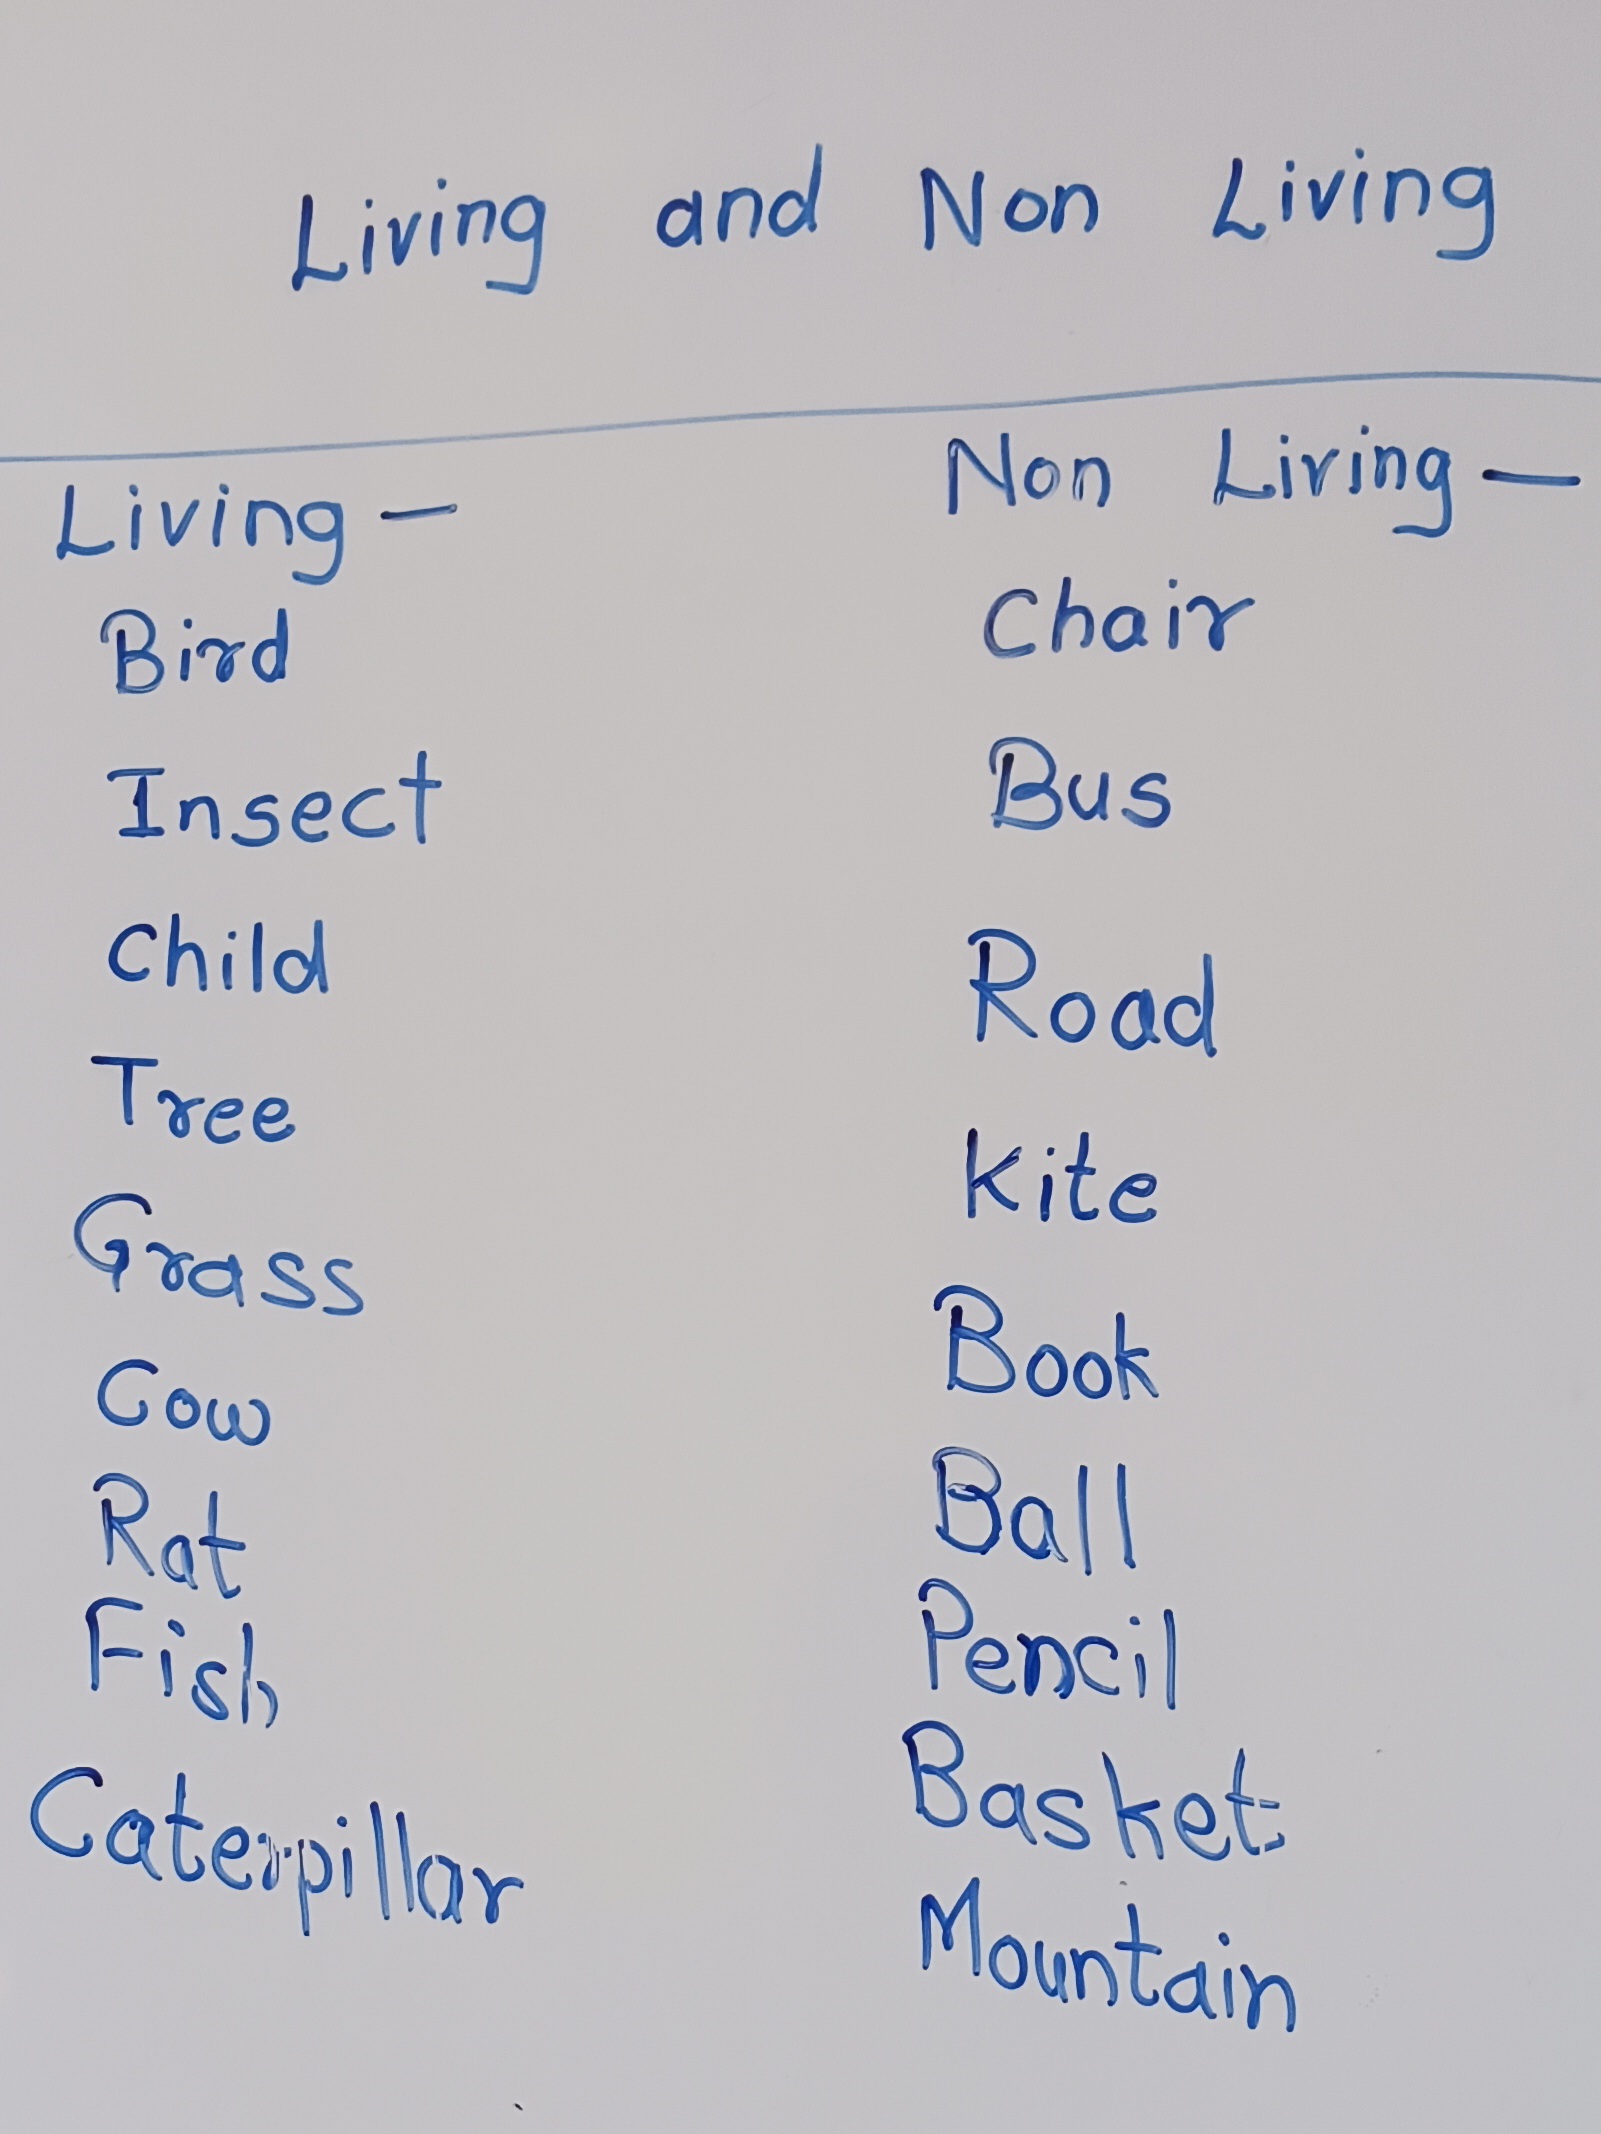 Living and Non Living
Living —
Bird
Insect
Child
Tree
Grass
Cow
Rat
Fish
Caterpillar
Non Living —
Chair
Bus
Road
Kite
Book
Ball
Pencil
Basket
Mountain